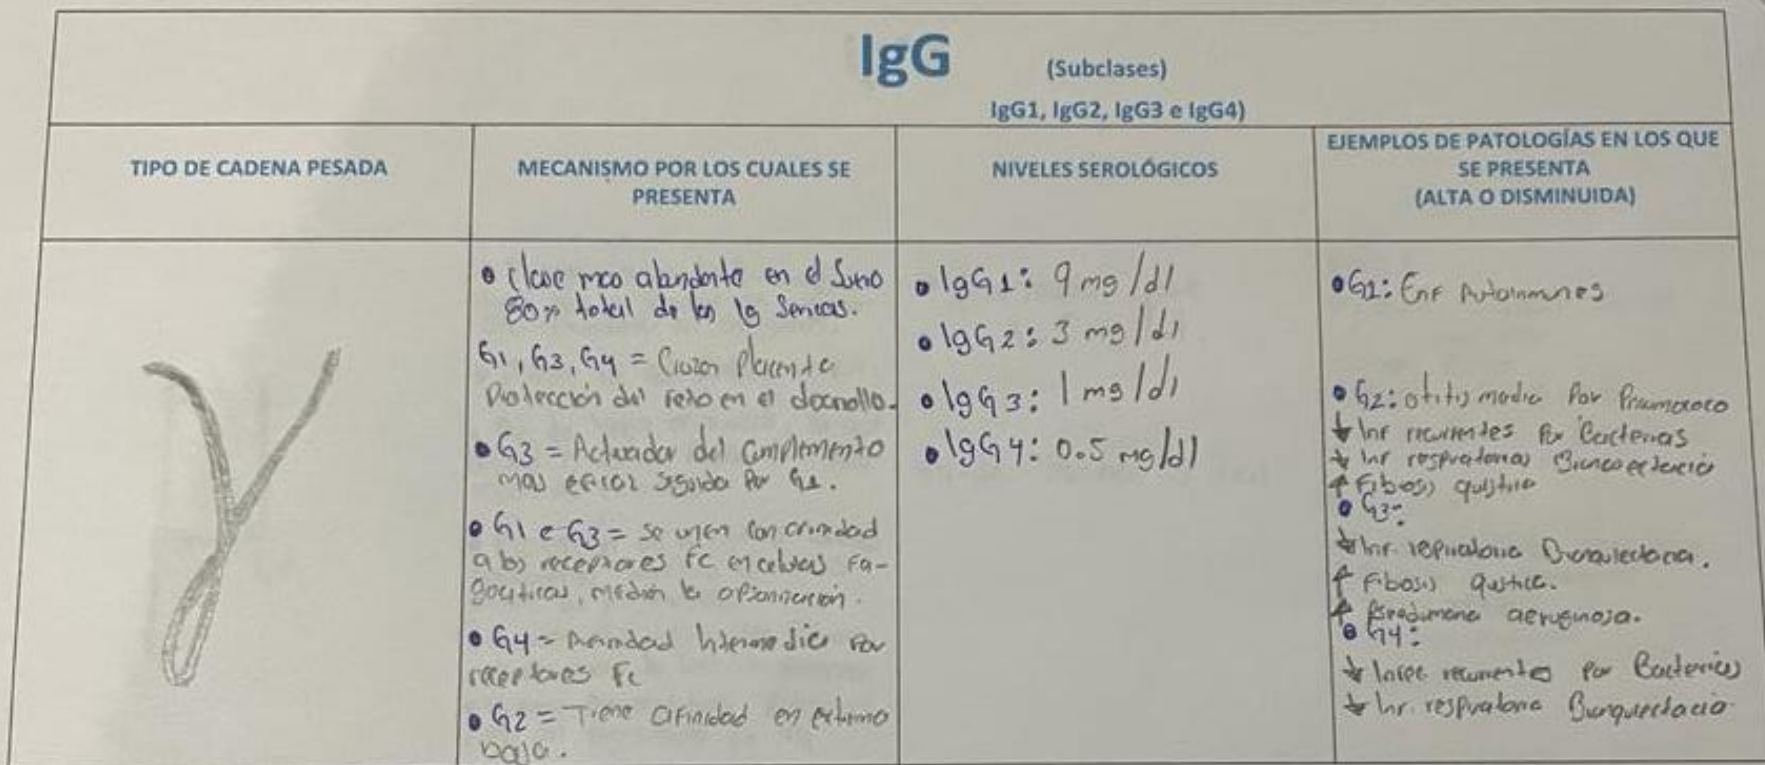 IgG
(Subclases)
IgG1, IgG2, IgG3 e IgG4)
TIPO DE CADENA PESADA
MECANISMO POR LOS CUALES SE
PRESENTA
NIVELES SEROLÓGICOS
EJEMPLOS DE PATOLOGÍAS EN LOS QUE
SE PRESENTA
(ALTA O DISMINUIDA)
γ
• Clase mas abundante en el Suero
80% total de las Ig Sericas.
G1, G3, G4 = Cruzan Placenta
Protección del feto en el
• G3 = Activador del Complemento
mas eficaz seguida Por G1.
• G1 e G3 = se unen con
a los receptores Fc en celulas Fa-
gociticas, median la
• G4 = Afinidad Intermedia Por
receptores Fc
• G2 = Tiene afinidad en extremo
baja.
• IgG1: 9 mg/dl
• IgG2: 3 mg/dl
• IgG3: 1 mg/dl
• IgG4: 0.5 mg/dl
• G1: Enf Autoinmunes
• G2: otitis media Por
↓ Inf recurrentes Por Bacterias
↓ Inf respiratorias
↑ Fibosis quistica
• G3:
↓ Inf. respiratoria
↑ Fibosis quistica.
↑ aeruginosa.
• G4:
↓ Infec recurrentes Por Bacterias
↓ Inf. respiratoria